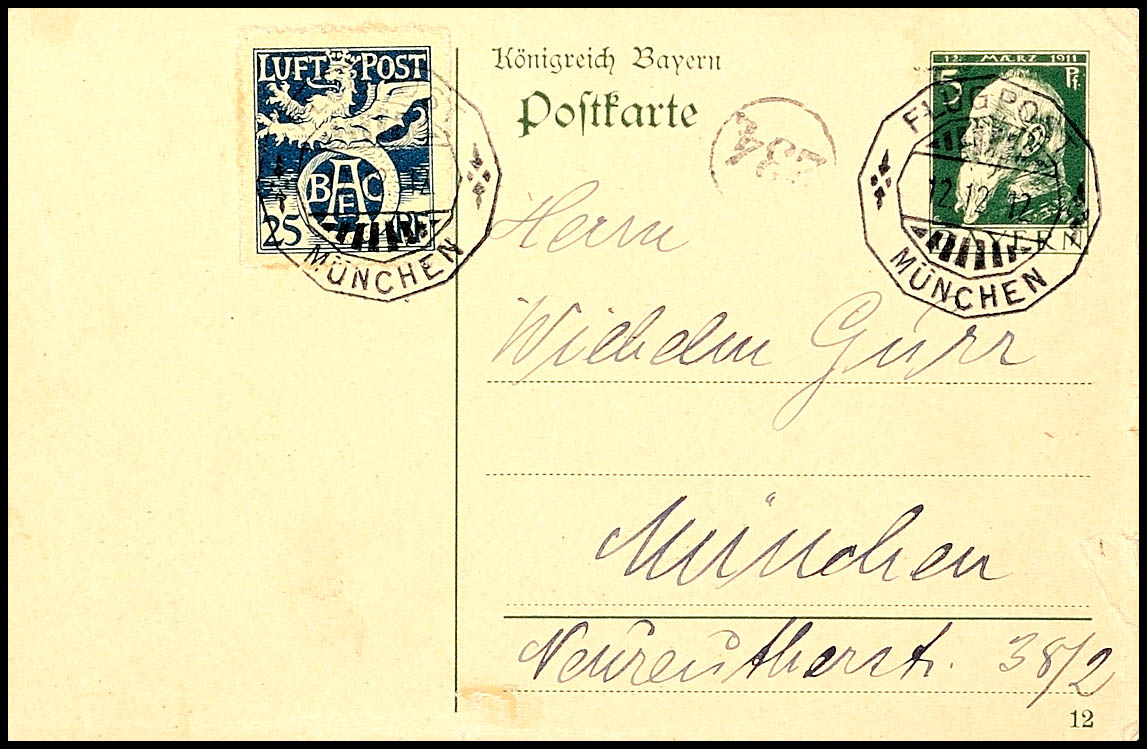 LUFT POST
BAEC
25 Pf
MÜNCHEN
Königreich Bayern
Postkarte
34
12. MÄRZ 1911
5 Pf.
FLUGPOST
12.12.12
MÜNCHEN
Herrn
Wilhelm Gürr
München
Neureutherstr. 38/2
12